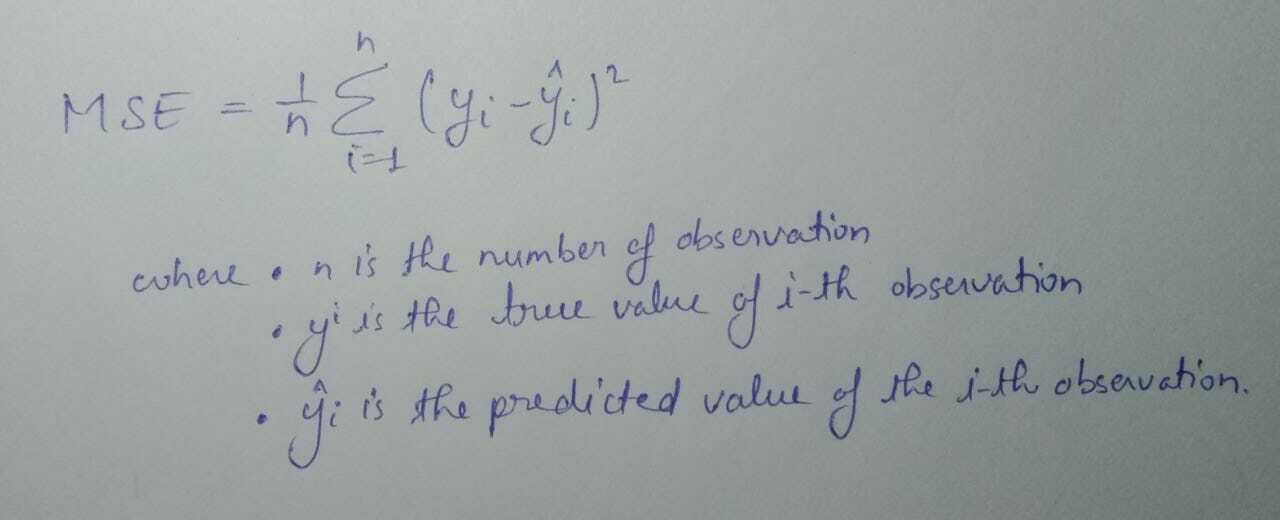 MSE = 1/n Σ_{i=1}^{n} (yi - ŷi)²
where • n is the number of observation
• yⁱ is the true value of i-th observation
• ŷi is the predicted value of the i-th observation.